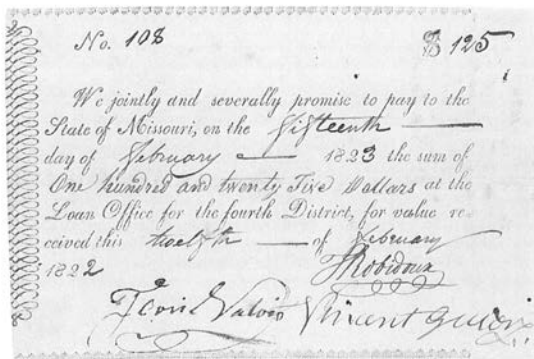 No. 108 $ 125
We jointly and severally promise to pay to the
State of Missouri, on the fifteenth
day of February 1823 the sum of
One hundred and twenty Five Dollars at the
Loan Office for the fourth District, for value re
ceived this twelfth of February
1822
J Robidoux
Vincent